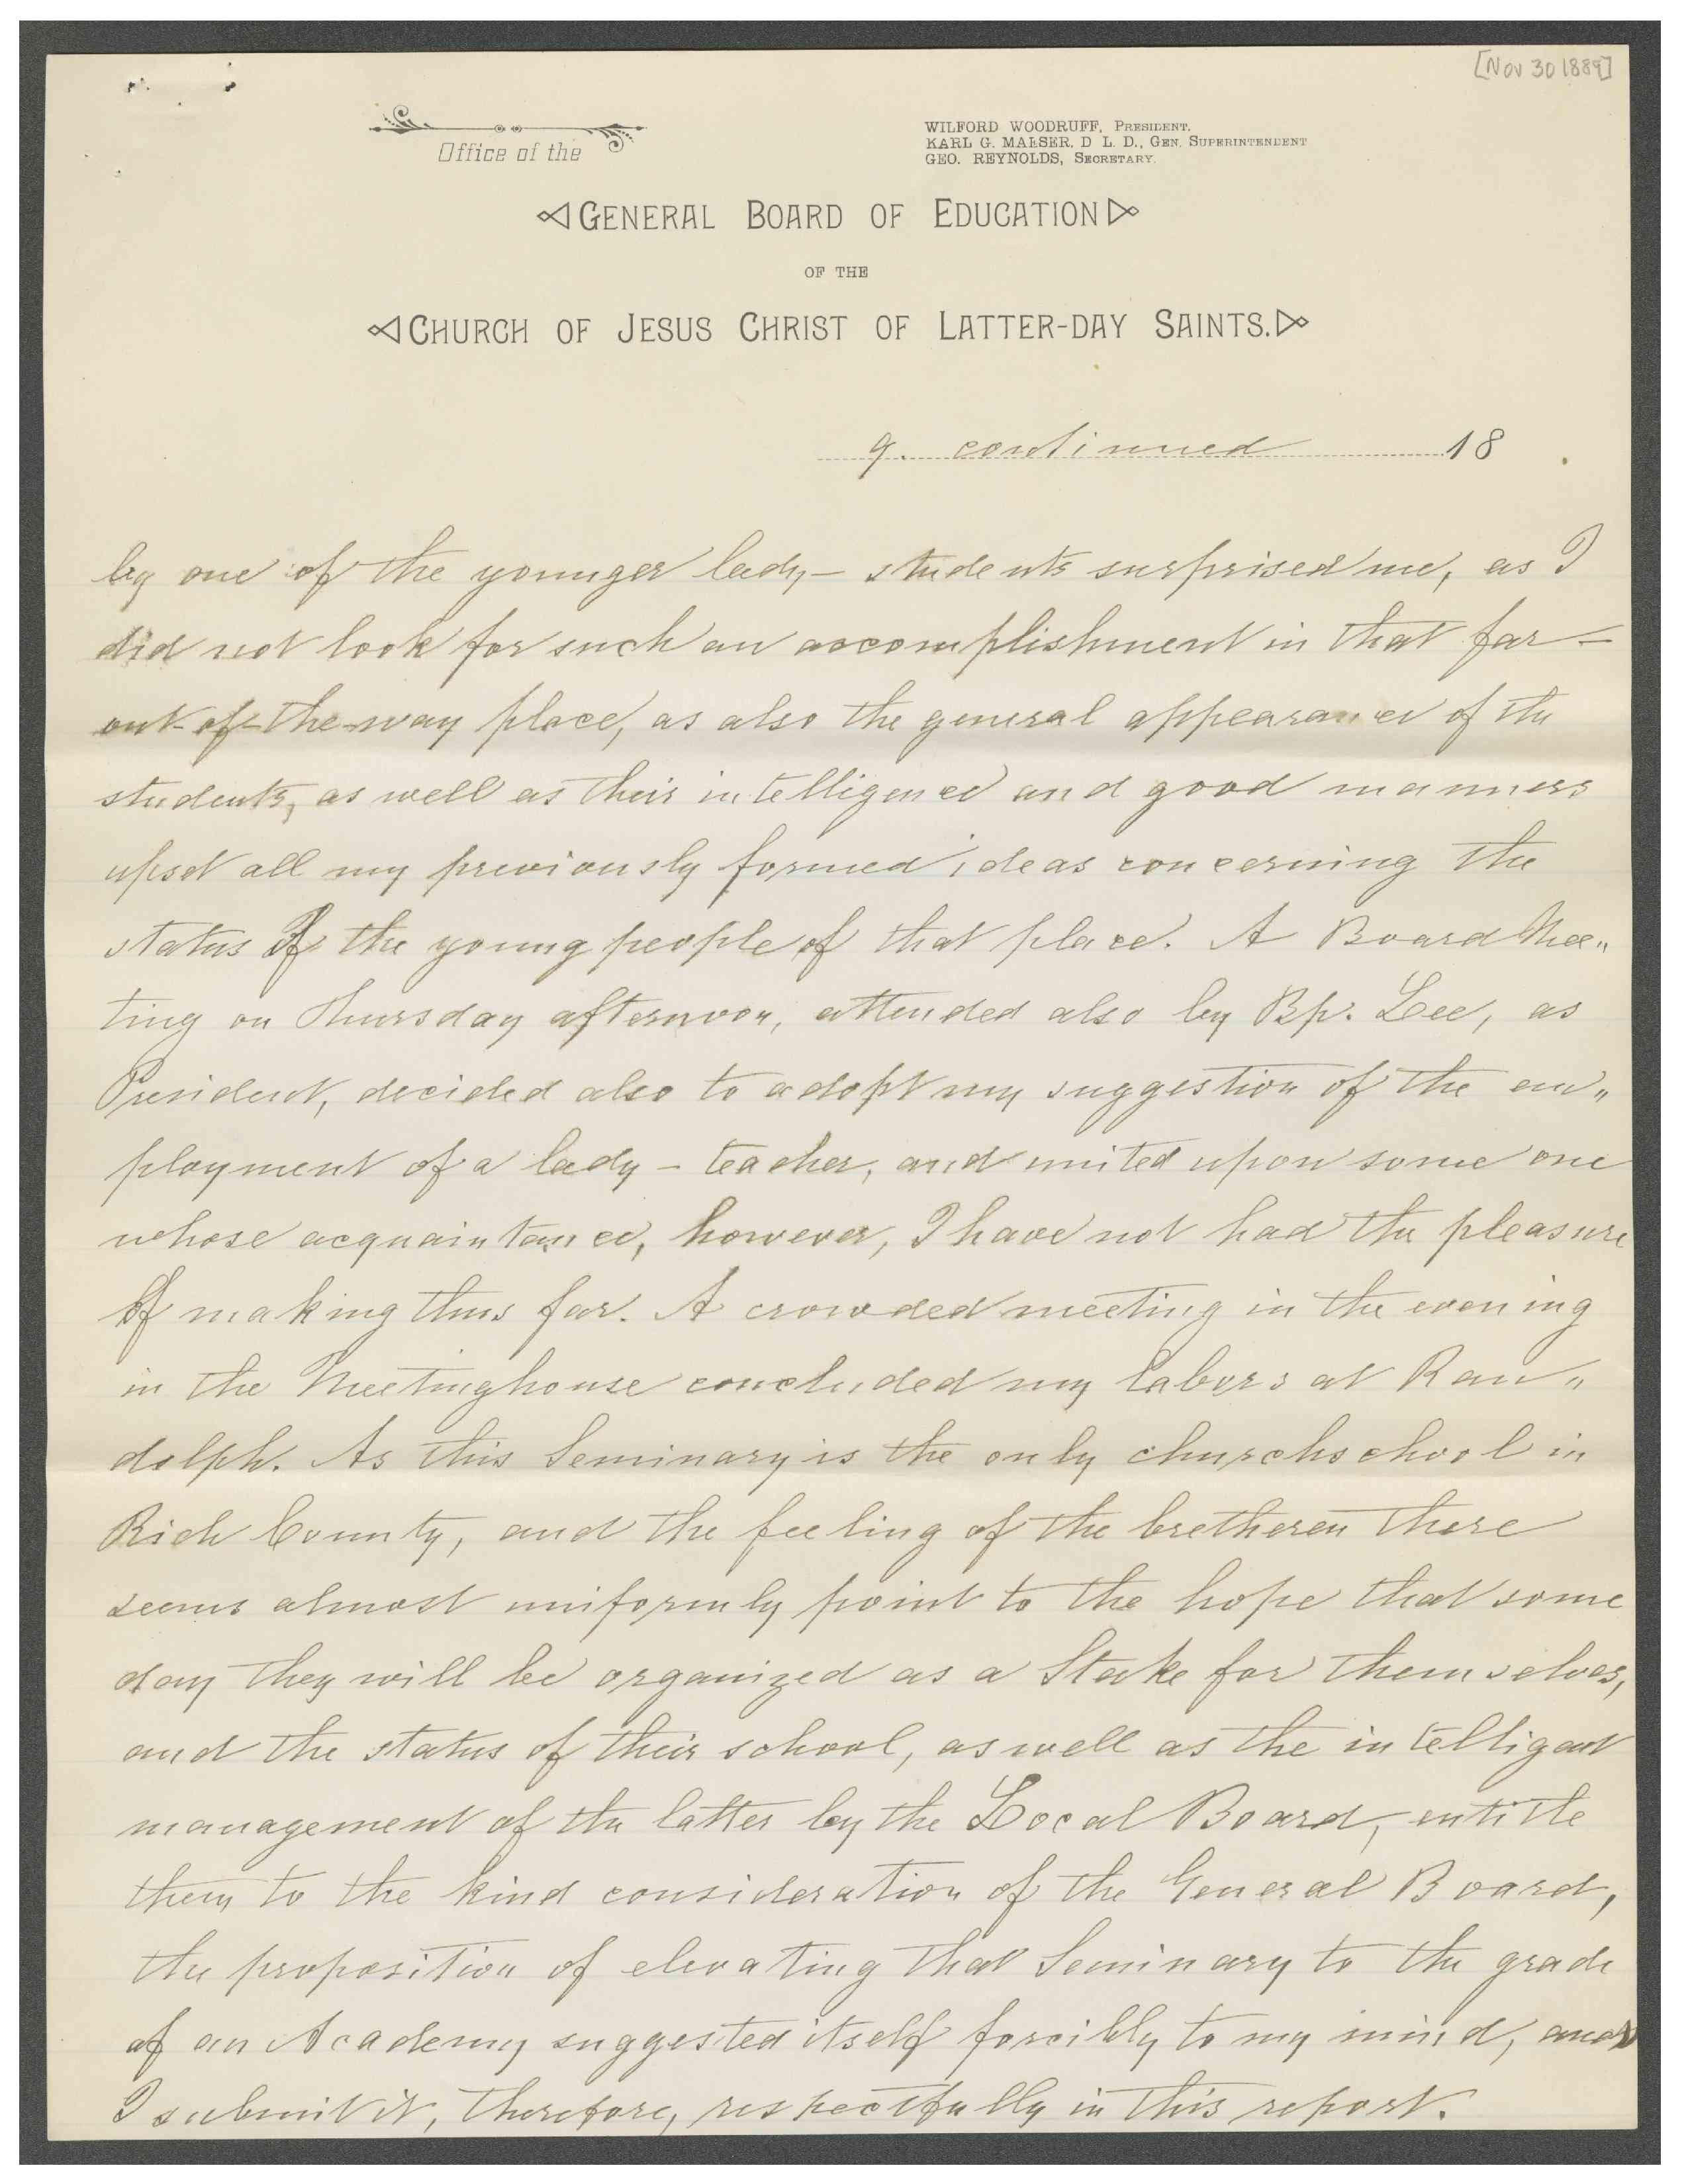 [Nov 30 1889]
Office of the
WILFORD WOODRUFF, PRESIDENT.
KARL G. MAESER. D L. D., GEN. SUPERINTENDENT
GEO. REYNOLDS, SECRETARY.
GENERAL BOARD OF EDUCATION
OF THE
CHURCH OF JESUS CHRIST OF LATTER-DAY SAINTS.
9. continued 18
by one of the younger lady-students surprised me, as I
did not look for such an accomplishment in that far-
out-of-the-way place, as also the general appearance of the
students, as well as their intelligence and good manners
upset all my previously formed ideas concerning the
status of the young people of that place. A Board Mee„
ting on Thursday afternoon, attended also by Bp. Lee, as
President, decided also to adopt my suggestion of the em„
ployment of a lady-teacher, and united upon some one
whose acquaintance, however, I have not had the pleasure
of making thus far. A crowded meeting in the evening
in the Meetinghouse concluded my labors at Ran„
dolph. As this Seminary is the only churchschool in
Rich County, and the feeling of the bretheren there
seems almost uniformly point to the hope that some
day they will be organized as a Stake for themselves,
and the status of their school, as well as the intelligent
management of the latter by the Local Board, entitle
them to the kind consideration of the General Board,
the proposition of elevating that Seminary to the grade
of an Academy suggested itself forcibly to my mind, and
I submit it, therefore, respectfully in this report.